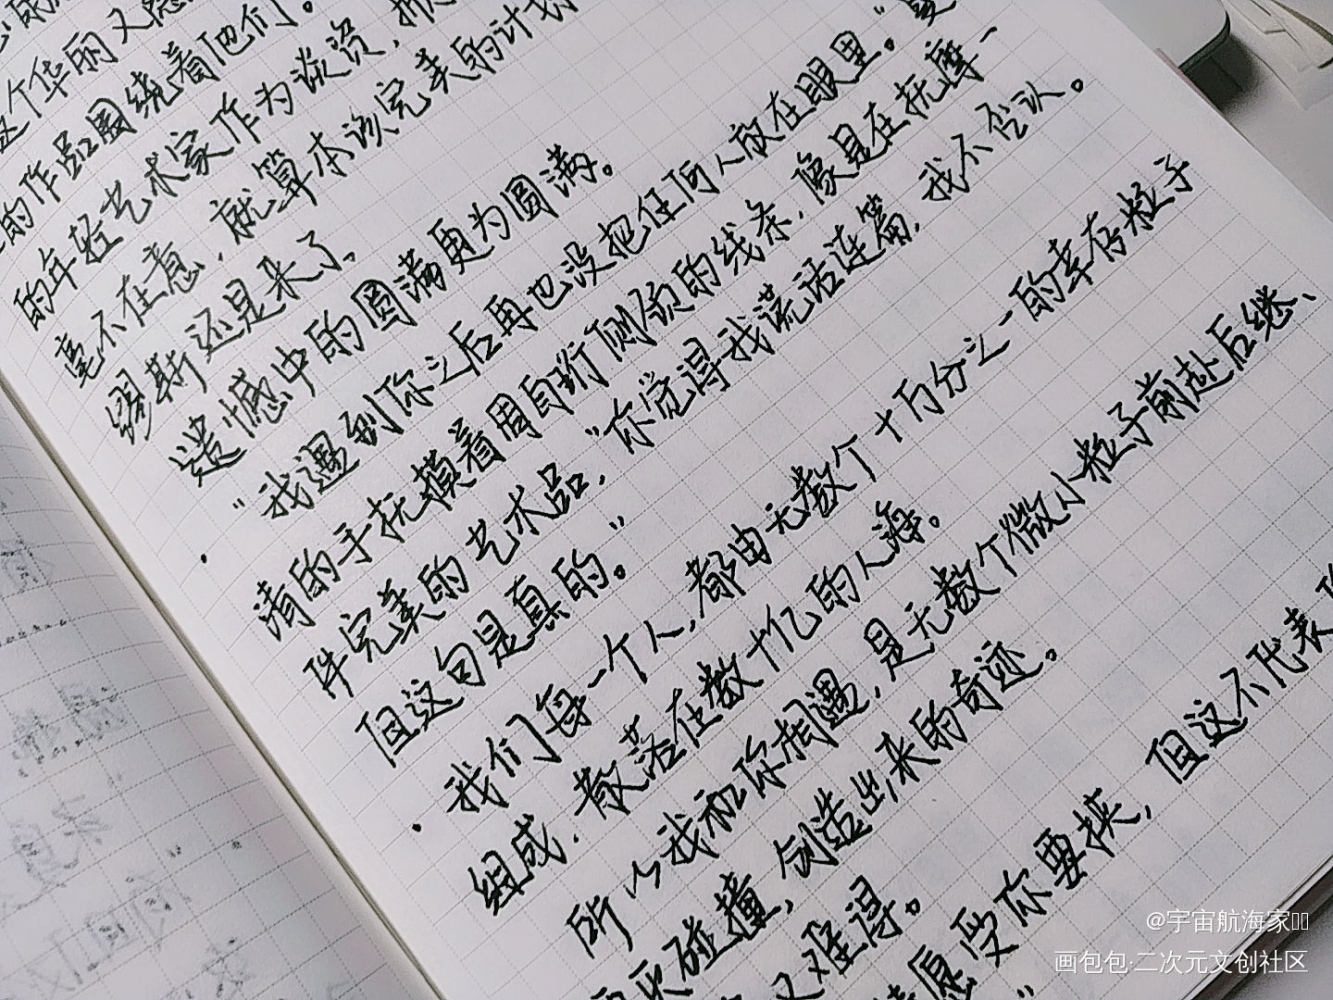 这个华丽又
的作品围绕着他们。
的年轻艺术家作为谈资，
毫不在意，就算本该完美的计划
缪斯还是来了、
遗憾中的圆满更为圆满。
“我遇到你之后再也没把任何人放在眼里。”夏
清的手抚摸着周自珩侧颈的线条，像是在抚摩一
件完美的艺术品，“你觉得我谎话连篇，我不否认。
但这句是真的。”
·我们每一个人，都由无数个十万分之一的幸存粒子
组成，散落在数十亿的人海。
所以我和你相遇，是无数个微小粒子前赴后继、
碰撞，创造出来的奇迹。
又难得。
愿受你要挟，但这不代表
@宇宙航海家
画包包·二次元文创社区